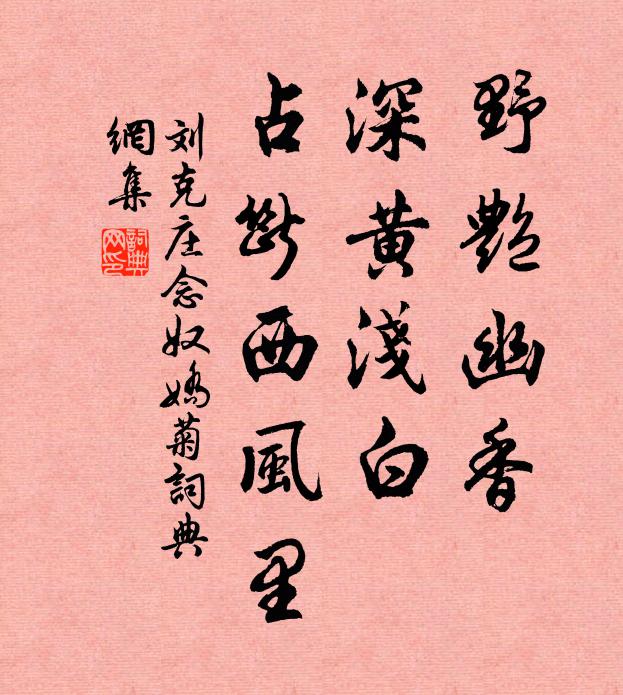 野艷幽香
深黄淺白
占断西風里
刘克庄念奴嬌菊詞典
網集
詞典
网印